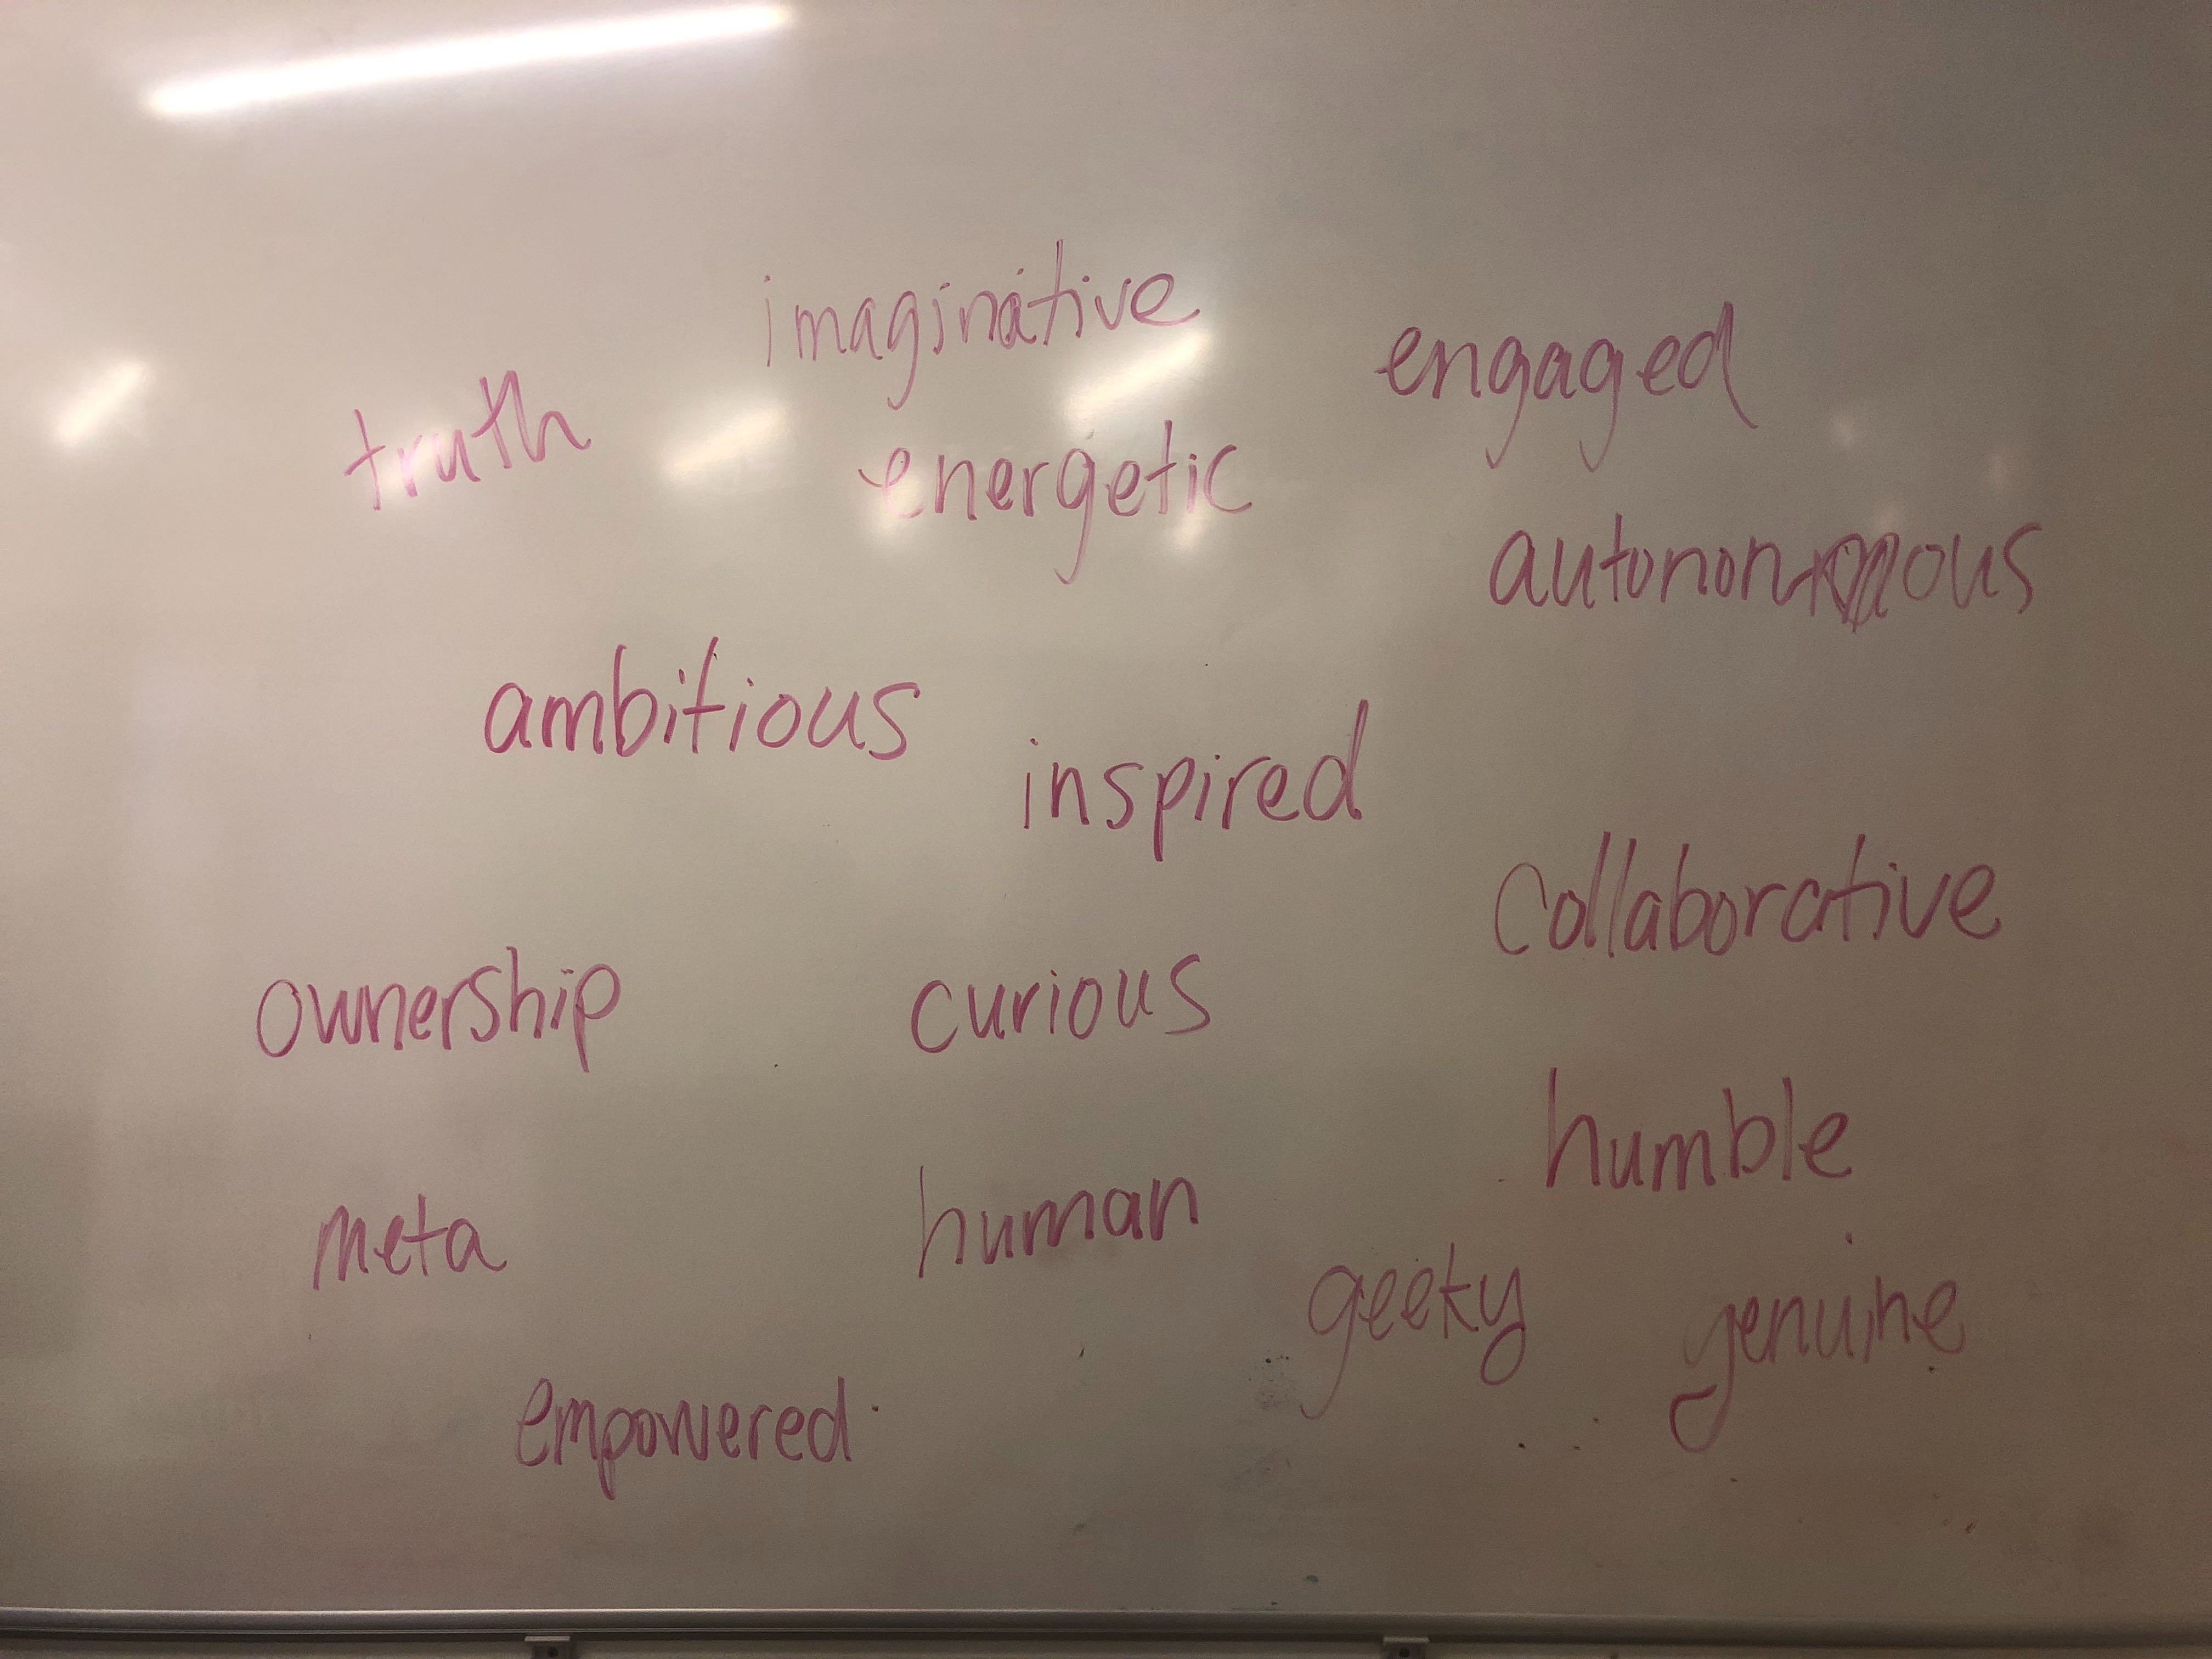 imaginative
engaged
truth
energetic
autonomous
ambitious
inspired
collaborative
ownership
curious
humble
meta
human
geeky
genuine
empowered